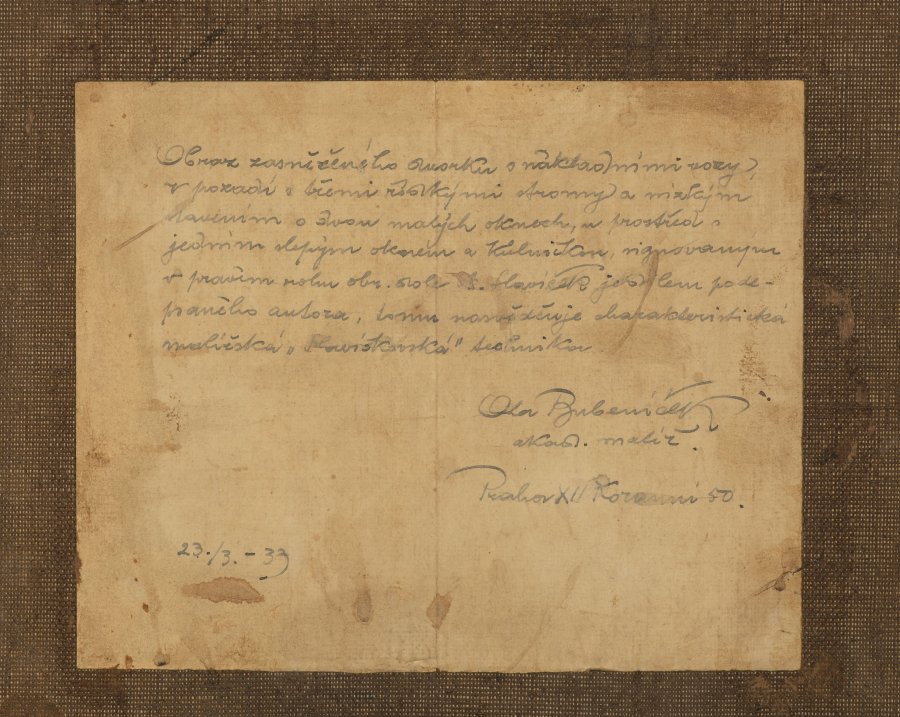 Obraz zasněženého dvorku s nákladními vozy,
v pozadí s třemi řídkými stromy a nízkým
stavením o dvou malých oknech, u prostřed s
jedním slepým oknem a kůlničkou, signovaným
v pravém rohu obr. dole A. Slavíček je dílem pode-
psaného autora, tomu nasvědčuje charakteristická
malířská „Slavíčkovská" technika
Ota Bubeníček
akad. malíř.
Praha XII 50.
23./3. - 33